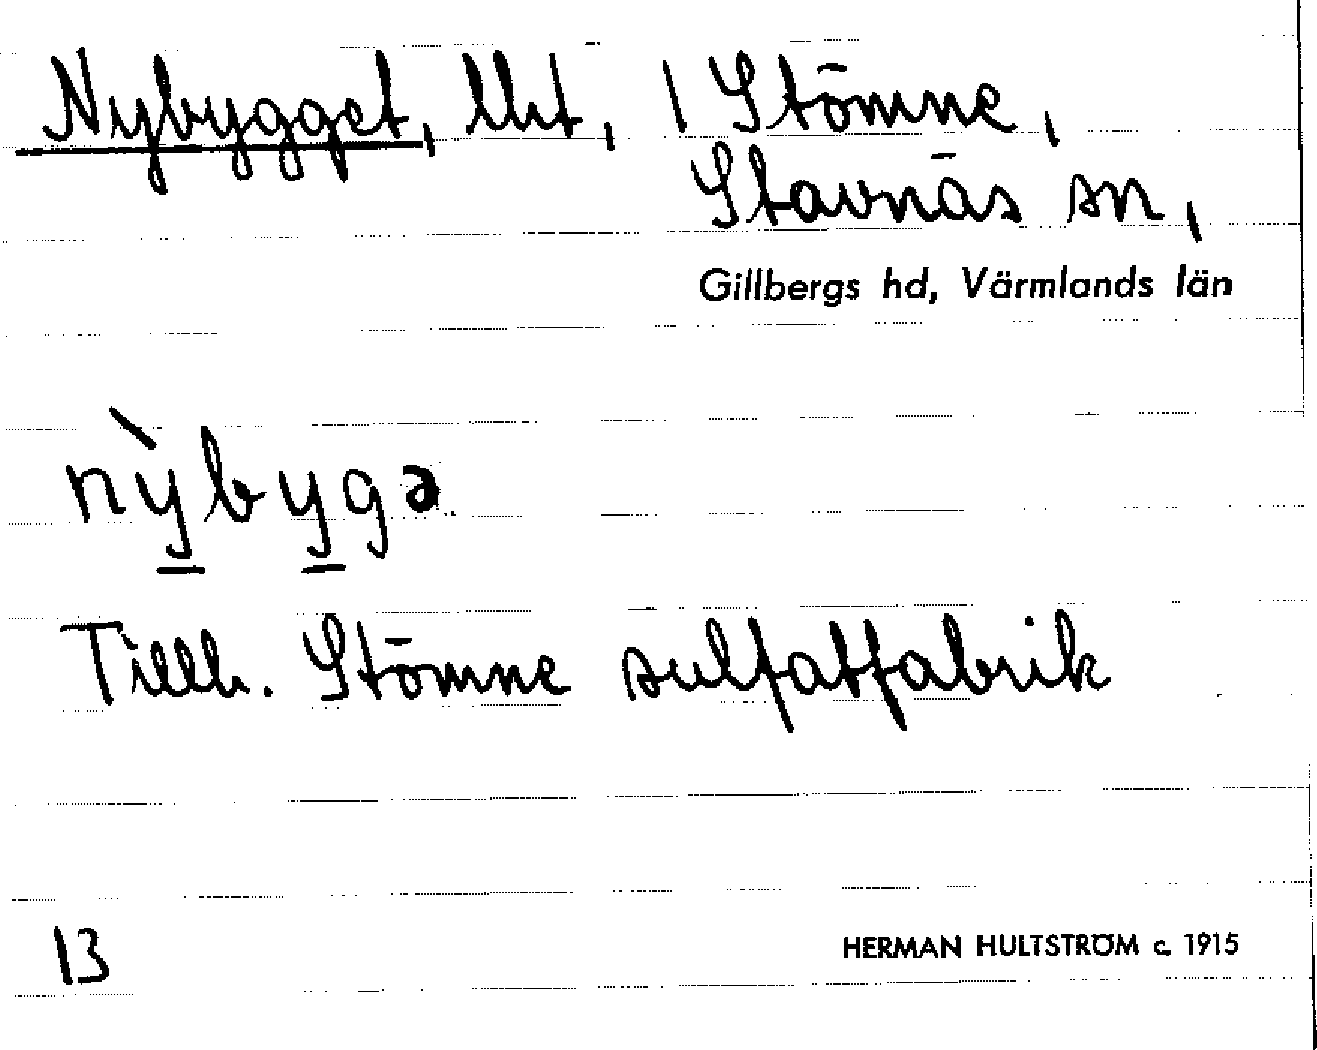 Nybygget, lht, 1 Stömne,
Stavnäs sn,
Gillbergs hd, Värmlands län
nỳbygə
Tillh. Stömne sulfatfabrik
13
HERMAN HULTSTRÖM c. 1915